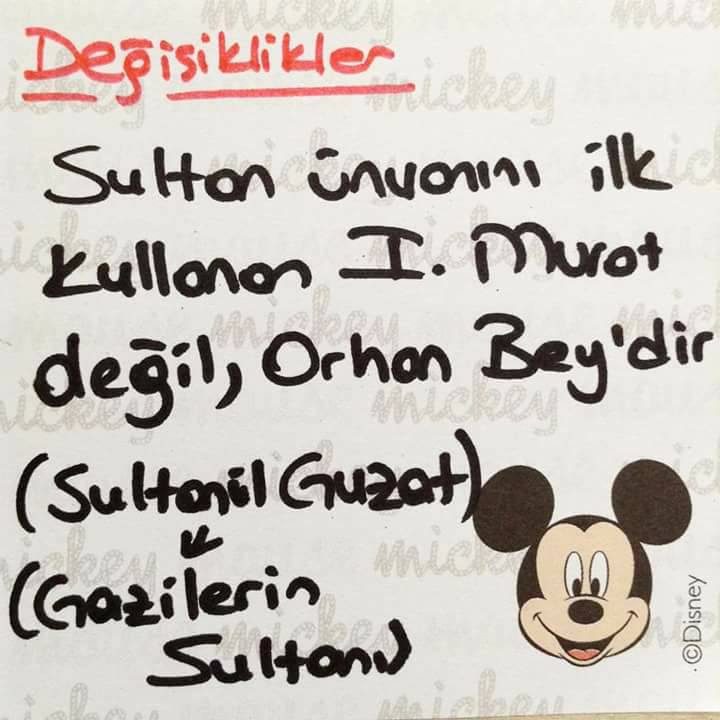 Değişiklikler
Sultan ünvanını ilk
kullanan I. Murat
değil, Orhan Bey'dir
(Sultanül Guzat)
(Gazilerin
Sultanı)
©Disney